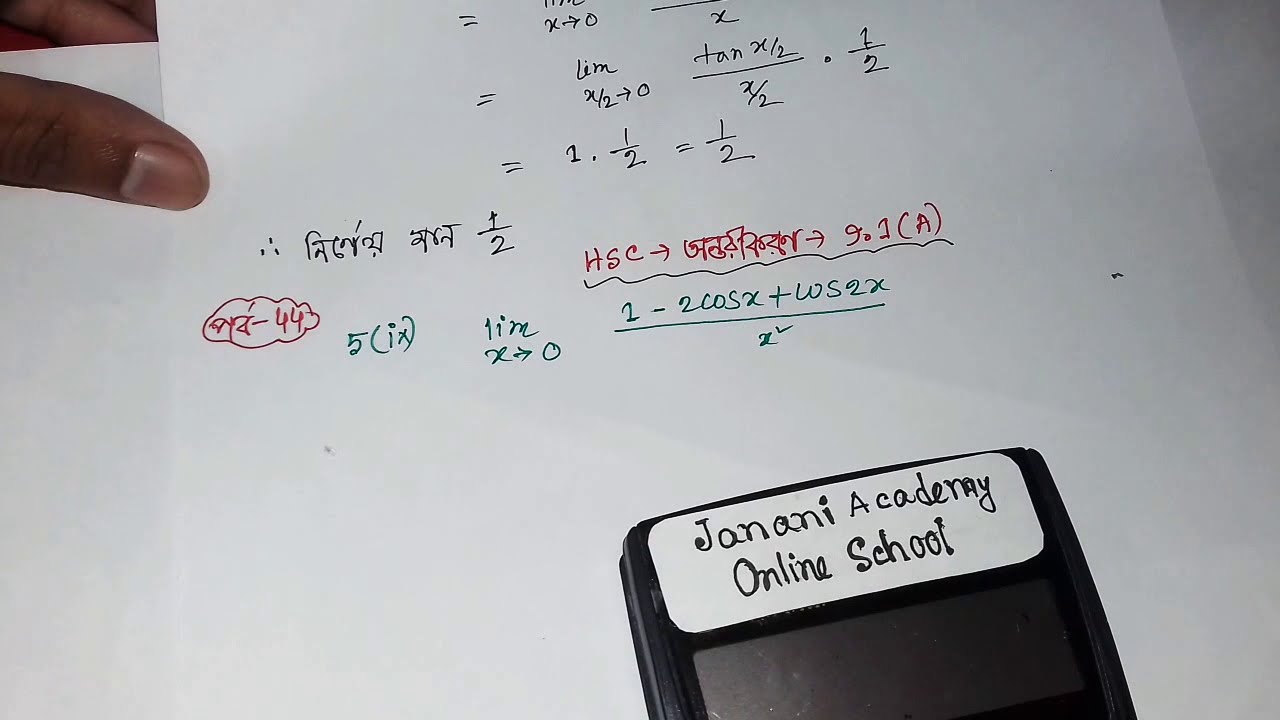 = lim x→0 x
= lim x/2→0 tan x/2 / x/2 . 1/2
= 1 . 1/2 = 1/2
∴ নির্ণেয় মান 1/2
HSC → অন্তরীকরণ → 9.1(A)
পর্ব-44
5(ix) lim x→0 1 - 2cosx + cos2x / x²
Janani Academy
Online School